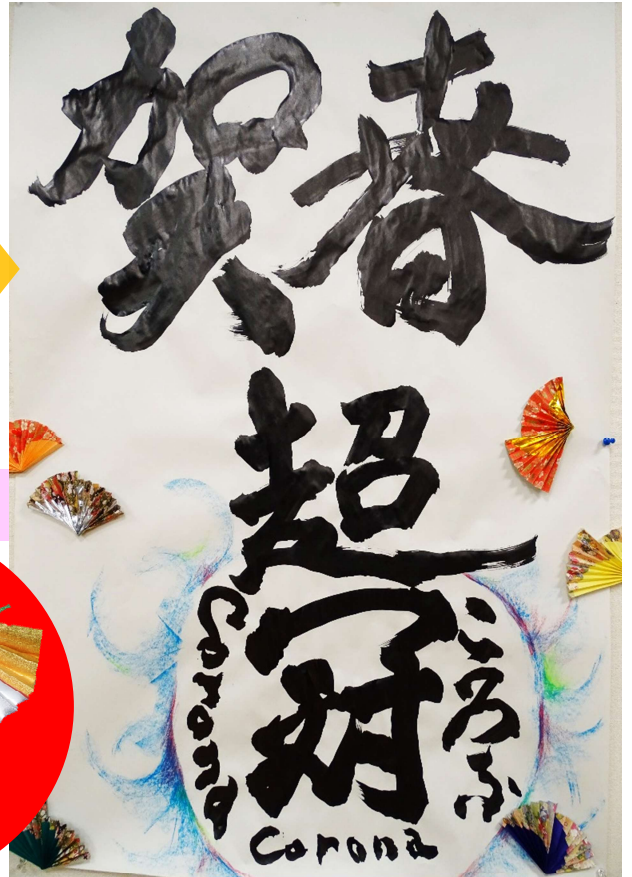 賀春
超冠
ころな
Corona
Corona